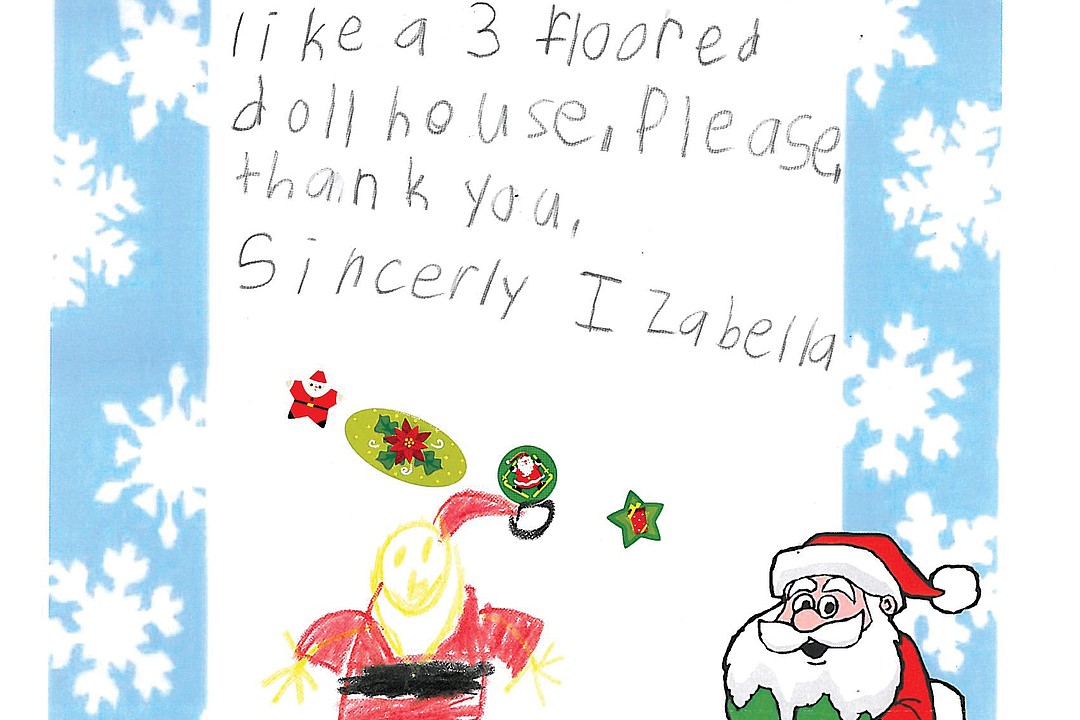 like a 3 floored
doll house, Please,
thank you,
Sincerly Izabella